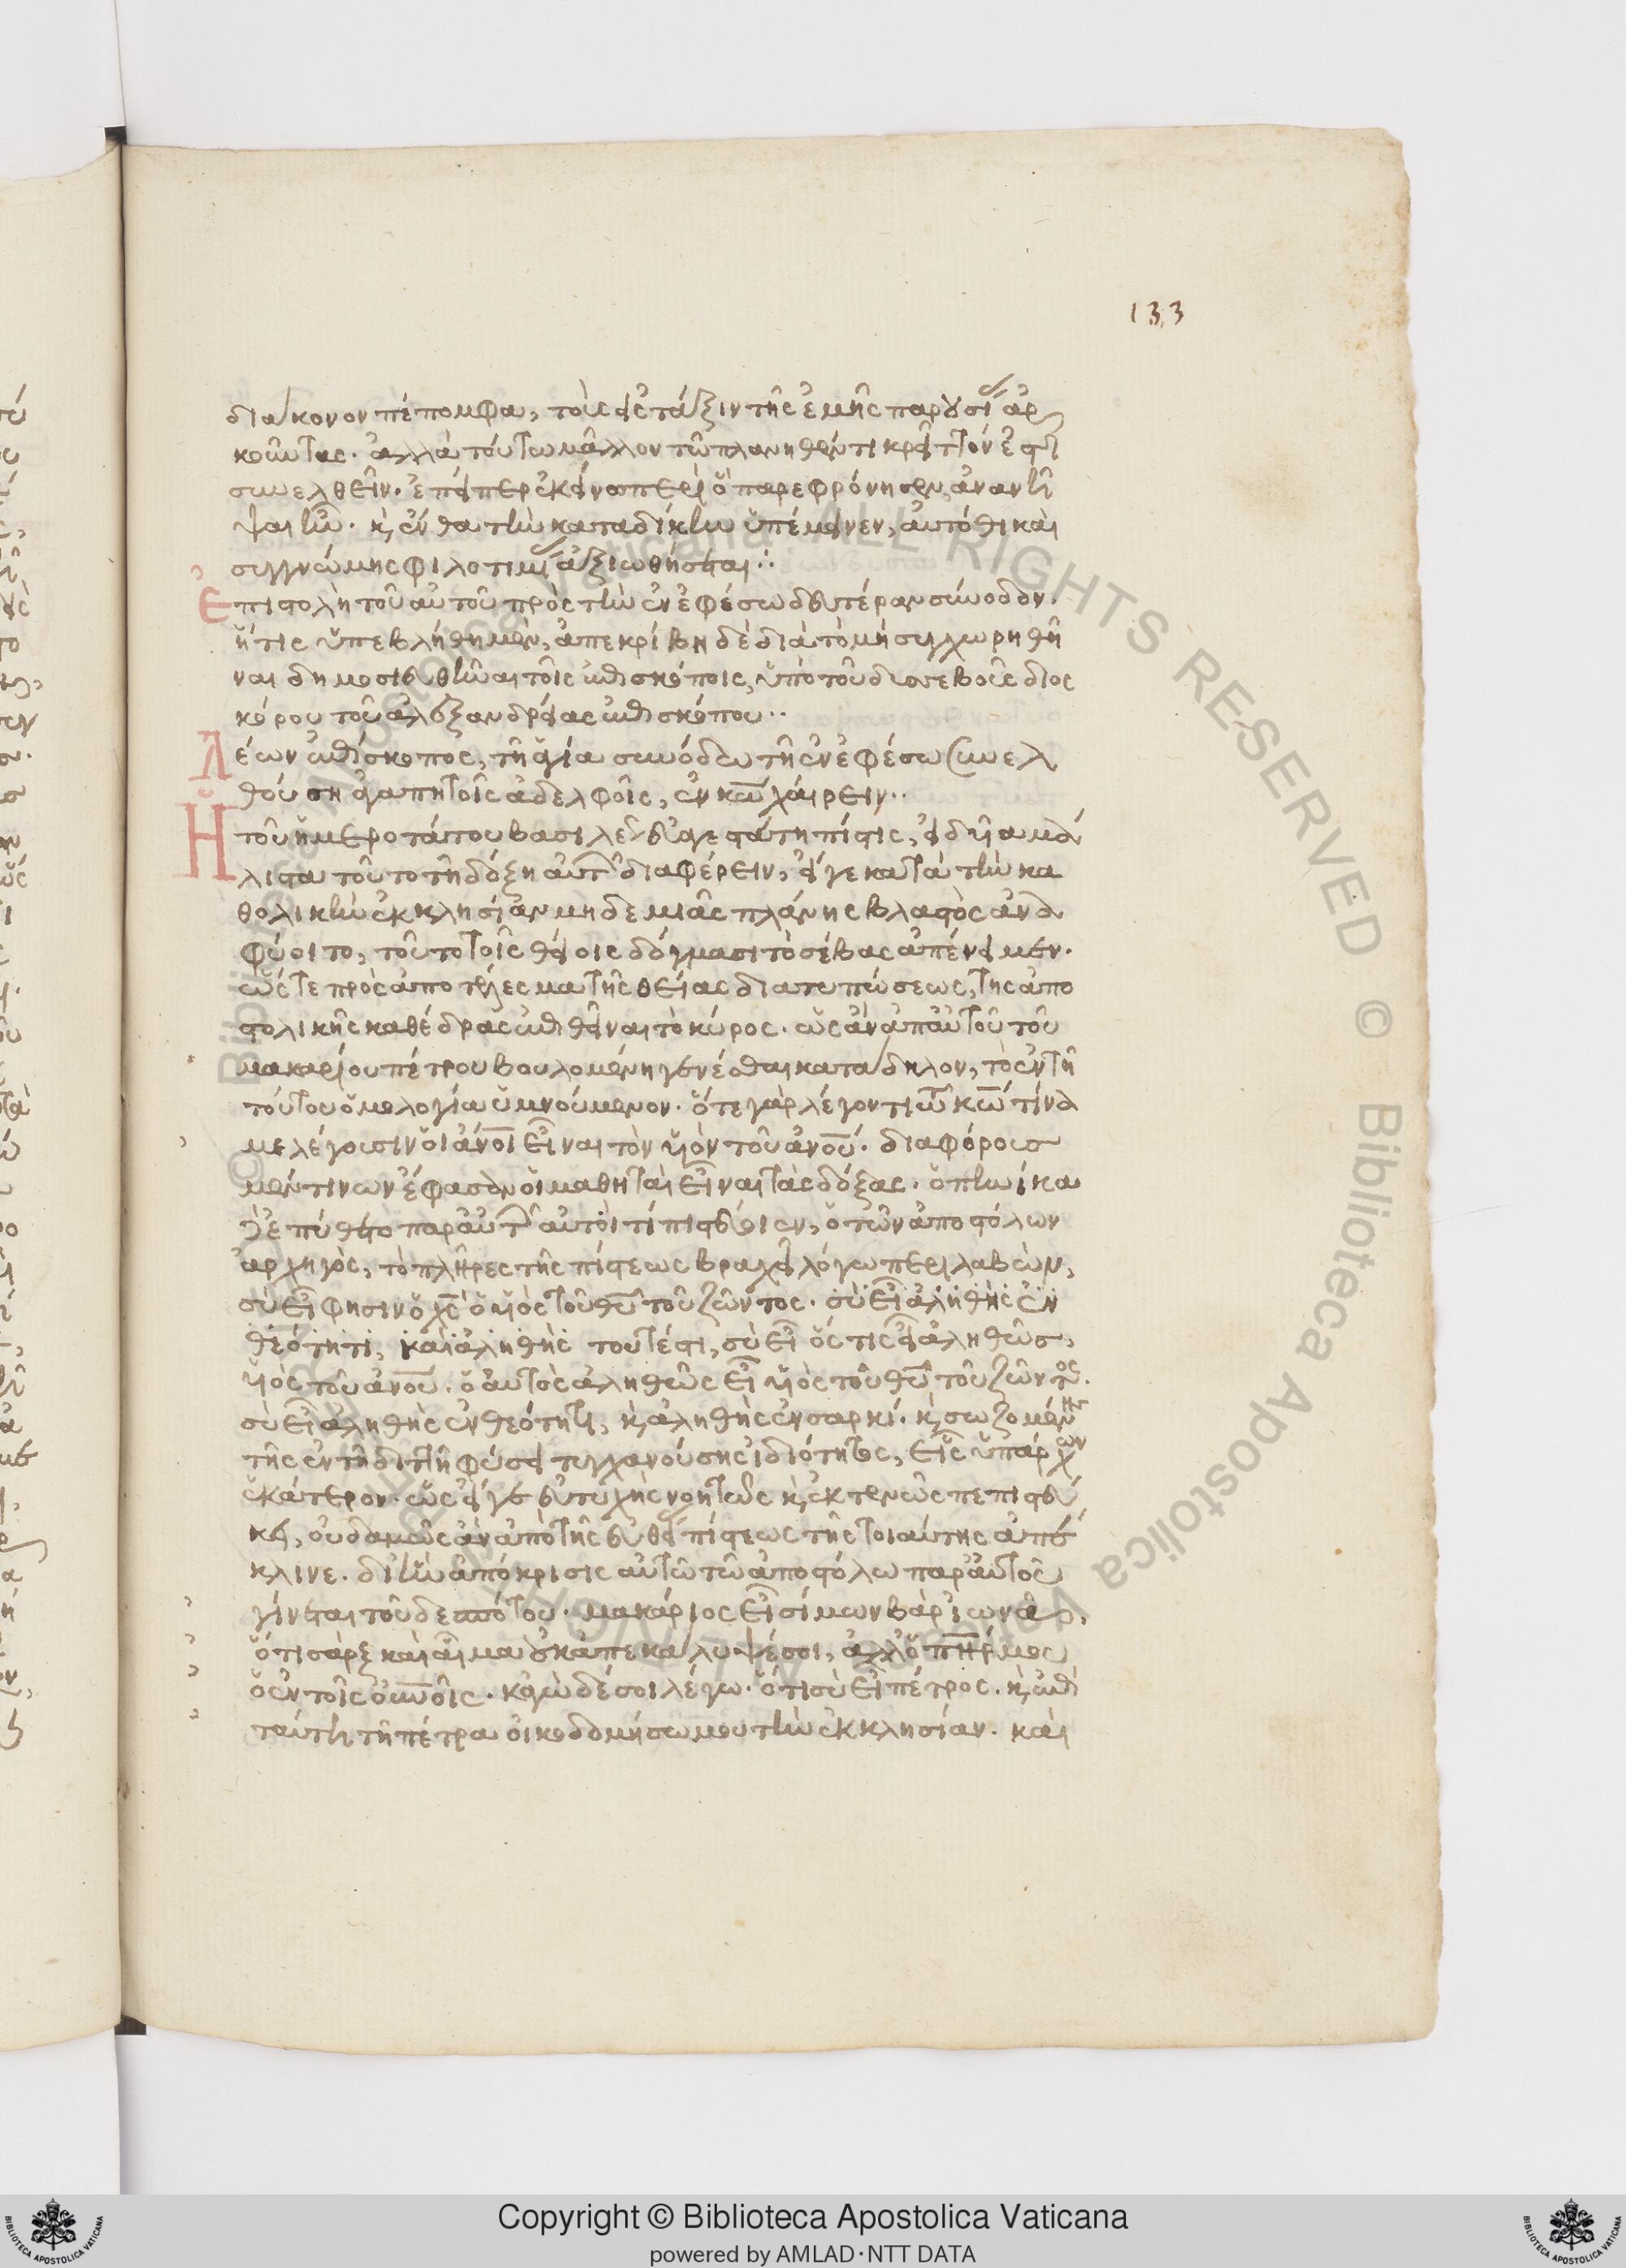 133
διάκονον πέπομφα, τοὺς εἰς τάξιν τῆς ἐμῆς παρουσίας ἀρ
κοῦντας. ἀλλὰ τούτω μᾶλλον τῶ πλανηθέντι κρεῖττόν ἐστι
συνελθεῖν. ἐπείπερ ἐκεῖνος περὶ ὃ παρεφρόνησεν, ἀνανῆ
ψαι ἦν. κ ἔνθα τὴν καταδίκην ὑπέμεινεν, αὐτόθι καὶ
συγγνώμης φιλοτιμίας ἀξιωθήσεται:
Ἐπιστολὴ τοῦ αὐτοῦ πρὸς τὴν ἐν ἐφέσω δευτέραν σύνοδον.
ἥτις ὑπεβλήθη μὲν, ἀπεκρίβη δὲ διὰ τὸ μὴ συγχωρηθῆ
ναι δημοσιευθῆναι τοῖς ἐπισκόποις, ὑπὸ τοῦ δυσσεβοῦς διος
κόρου τοῦ ἀλεξανδρείας ἐπισκόπου..
Λέων ἐπίσκοπος, τῆ ἁγία συνόδω τῆ ἐν ἐφέσω συνελ
θούση ἀγαπητοῖς ἀδελφοῖς, ἐν κω χαίρειν..
Ἡ τοῦ ἡμεροτάτου βασιλέως εὐαγεστάτη πίστις, εἰδυῖα μά
λιστα τοῦτο τῆ δόξη αὐτοῦ διαφέρειν, εἴγε κατὰ τὴν κα
θολικὴν ἐκκλησίαν μηδεμιᾶς πλάνης βλαστὸς ἀνα
φύοιτο, τοῦτο τοῖς θείοις δόγμασι τὸ σέβας ἀπένειμεν.
ὥστε πρὸς ἀποτέλεσμα τῆς θείας διατυπώσεως, τῆς ἀπο
στολικῆς καθέδρας ἐπιθεῖναι τὸ κύρος. ὡς ἂν ἀπ αὐτοῦ τοῦ
μακαρίου πέτρου βουλομένη γενέσθαι κατάδηλον, τὸ ἐν τῆ
τούτου ὁμολογία ὑμνούμενον. ὅτε γὰρ λέγοντι τῶ κω τίνα
με λέγουσιν οἱ ἄνοι εἶναι τὸν υἱὸν τοῦ ἀνου. διαφόρους
μέν τινων ἔφασαν οἱ μαθηταὶ εἶναι τὰς δόξας. ὁπηνίκα
δὲ ἐπύθετο παρ αὐτῶν αὐτοὶ τί πιστεύοιεν, ὁ τῶν ἀποστόλων
ἀρχηγὸς, τὸ πλῆρες τῆς πίστεως βραχεῖ λόγω περιλαβὼν,
σὺ εἶ φησιν ὁ χς ὁ υἱὸς τοῦ θυ τοῦ ζῶντος. σὺ εἶ ἀληθὴς ἐν
θεότητι, καὶ ἀληθὴς τουτέστι, σὺ εἶ ὅστις εἶ ἀληθῶς,
υἱὸς τοῦ ἀνου. ὁ αὐτὸς ἀληθῶς εἶ υἱὸς τοῦ θυ τοῦ ζῶντος.
σὺ εἶ ἀληθὴς ἐν θεότητι, κ ἀληθὴς ἐν σαρκί. κ σωζομένης
τῆς ἐν τῆ διττῆ φύσει τυγχανούσης ἰδιότητος, εἷς ὑπάρχων
ἑκάτερον. ὡς εἴγε εὐτυχὴς νοητῶς κ ἐκτενῶς πεπιστεύ
κει, οὐδαμῶς ἂν ἀπὸ τῆς εὐθεί πίστεως τῆς τοιαύτης ἀπέ
κλινε. δι ἣν ἀπόκρισις αὐτῶ τῶ ἀποστόλω παρ αὐτοῦ
γίνεται τοῦ δεσπότου. μακάριος εἶ σίμων βὰρ ἰωνᾶ,
ὅτι σὰρξ καὶ αἷμα οὐκ ἀπεκάλυψέ σοι, ἀλλ ὁ πηρ μου
ὁ ἐν τοῖς οὐνοῖς. κἀγὼ δέ σοι λέγω. ὅτι σὺ εἶ πέτρος. κ ἐπὶ
ταύτη τῆ πέτρα οἰκοδομήσω μου τὴν ἐκκλησίαν. καὶ
Copyright © Biblioteca Apostolica Vaticana
powered by AMLAD·NTT DATA